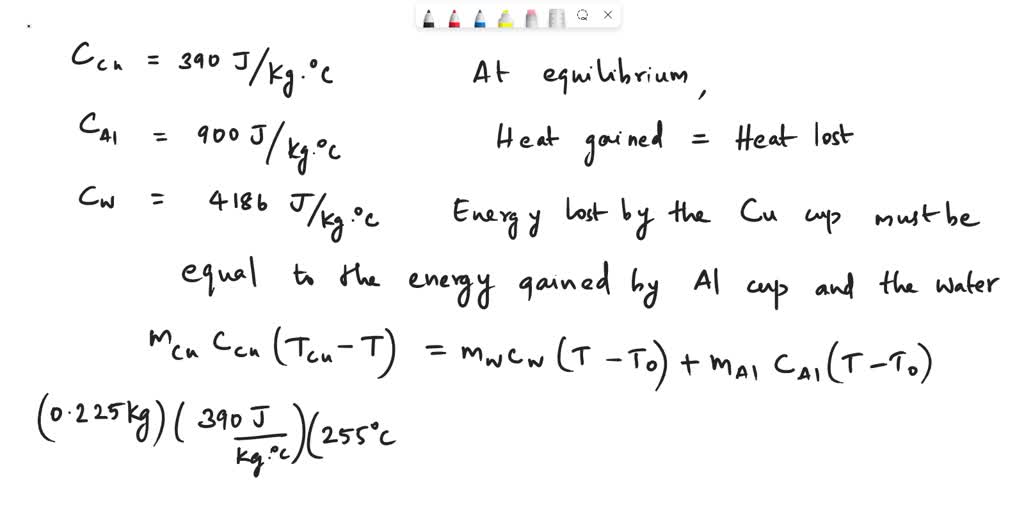 C_Cu = 390 J/kg.°C
At equilibrium,
C_Al = 900 J/kg.°C
Heat gained = Heat lost
C_W = 4186 J/kg.°C
Energy lost by the Cu cup must be
equal to the energy gained by Al cup and the water
m_Cu C_Cu (T_Cu - T) = m_W C_W (T - T_0) + m_Al C_Al (T - T_0)
(0.225kg) (390 J/kg.°C) (255°C